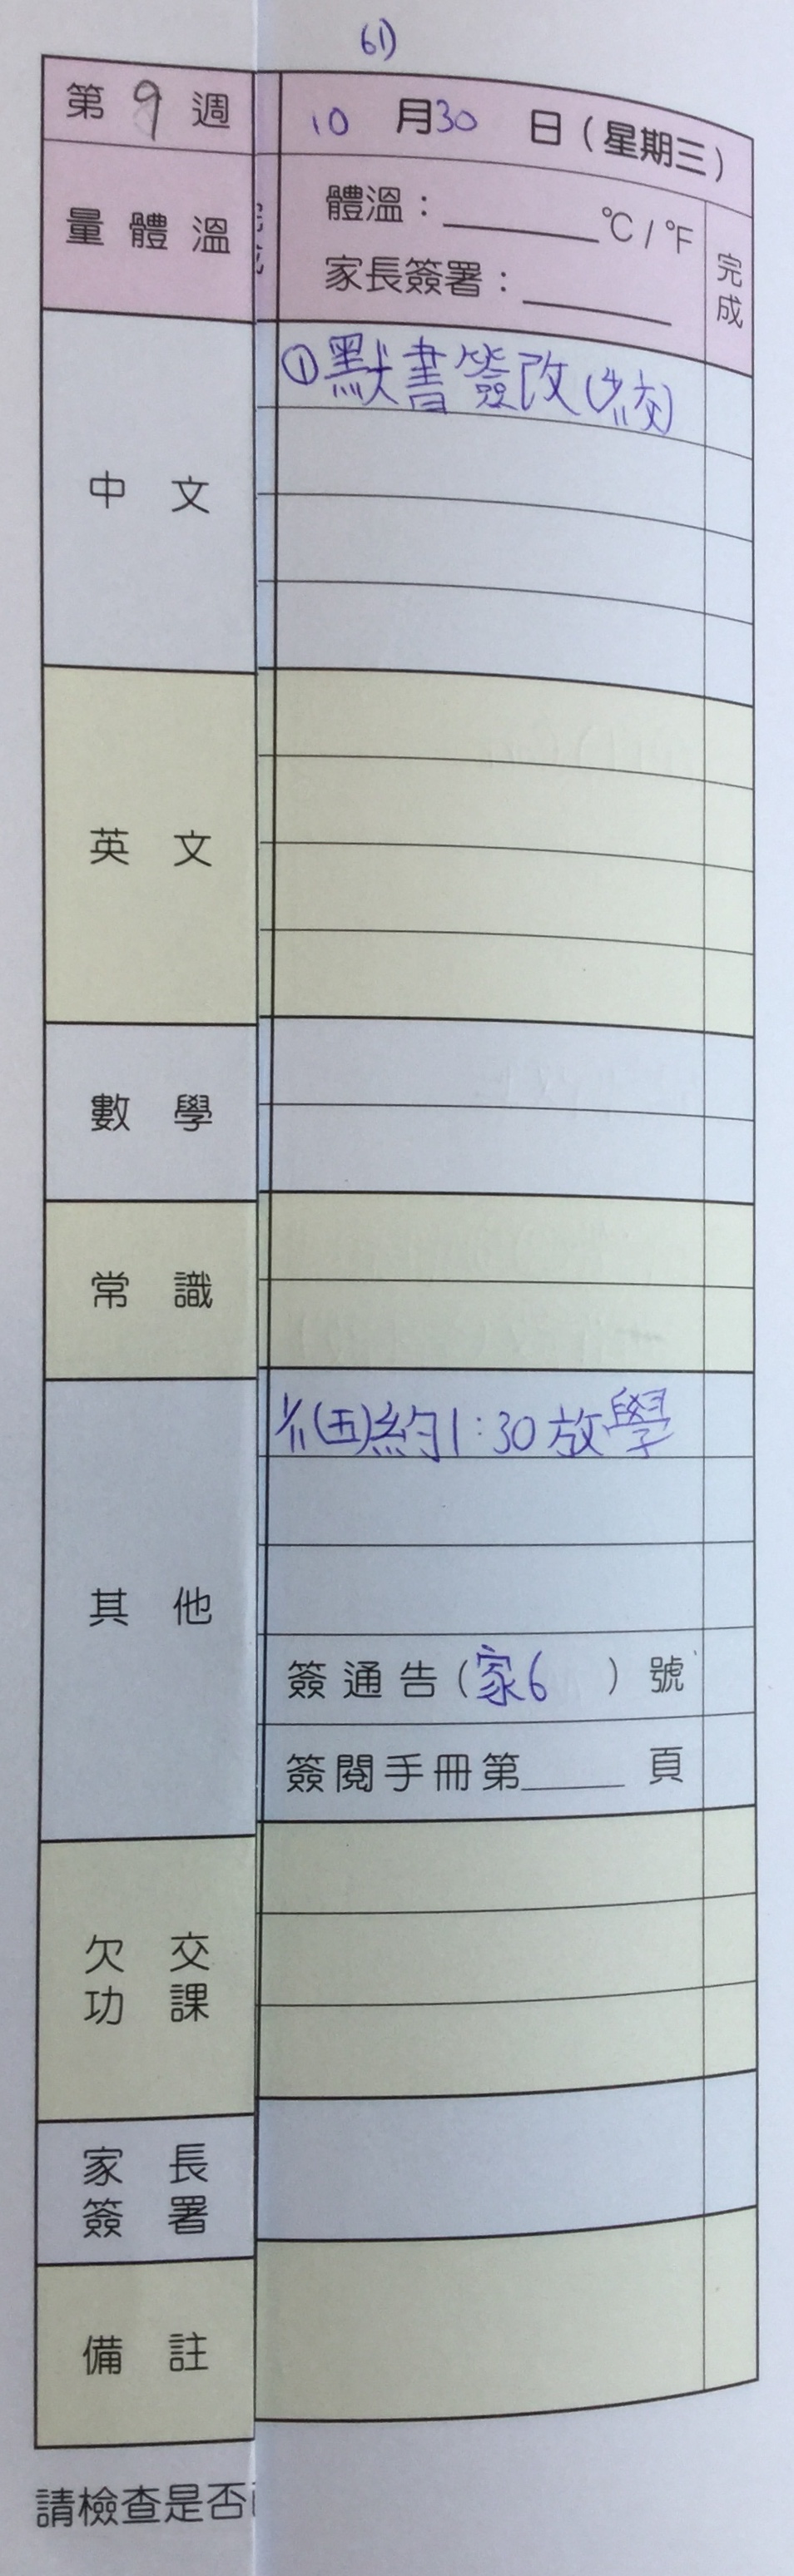 61)
第 9 週
10 月 30 日 (星期三)
量 體 溫
完成
體溫：______℃ / ℉
家長簽署：______
完成
中 文
①默書簽改(4/11交)
英 文
數 學
常 識
其 他
1/11(五)約1:30放學
簽通告(家6 ) 號
簽閱手冊第______ 頁
欠 交
功 課
家 長
簽 署
備 註
請檢查是否